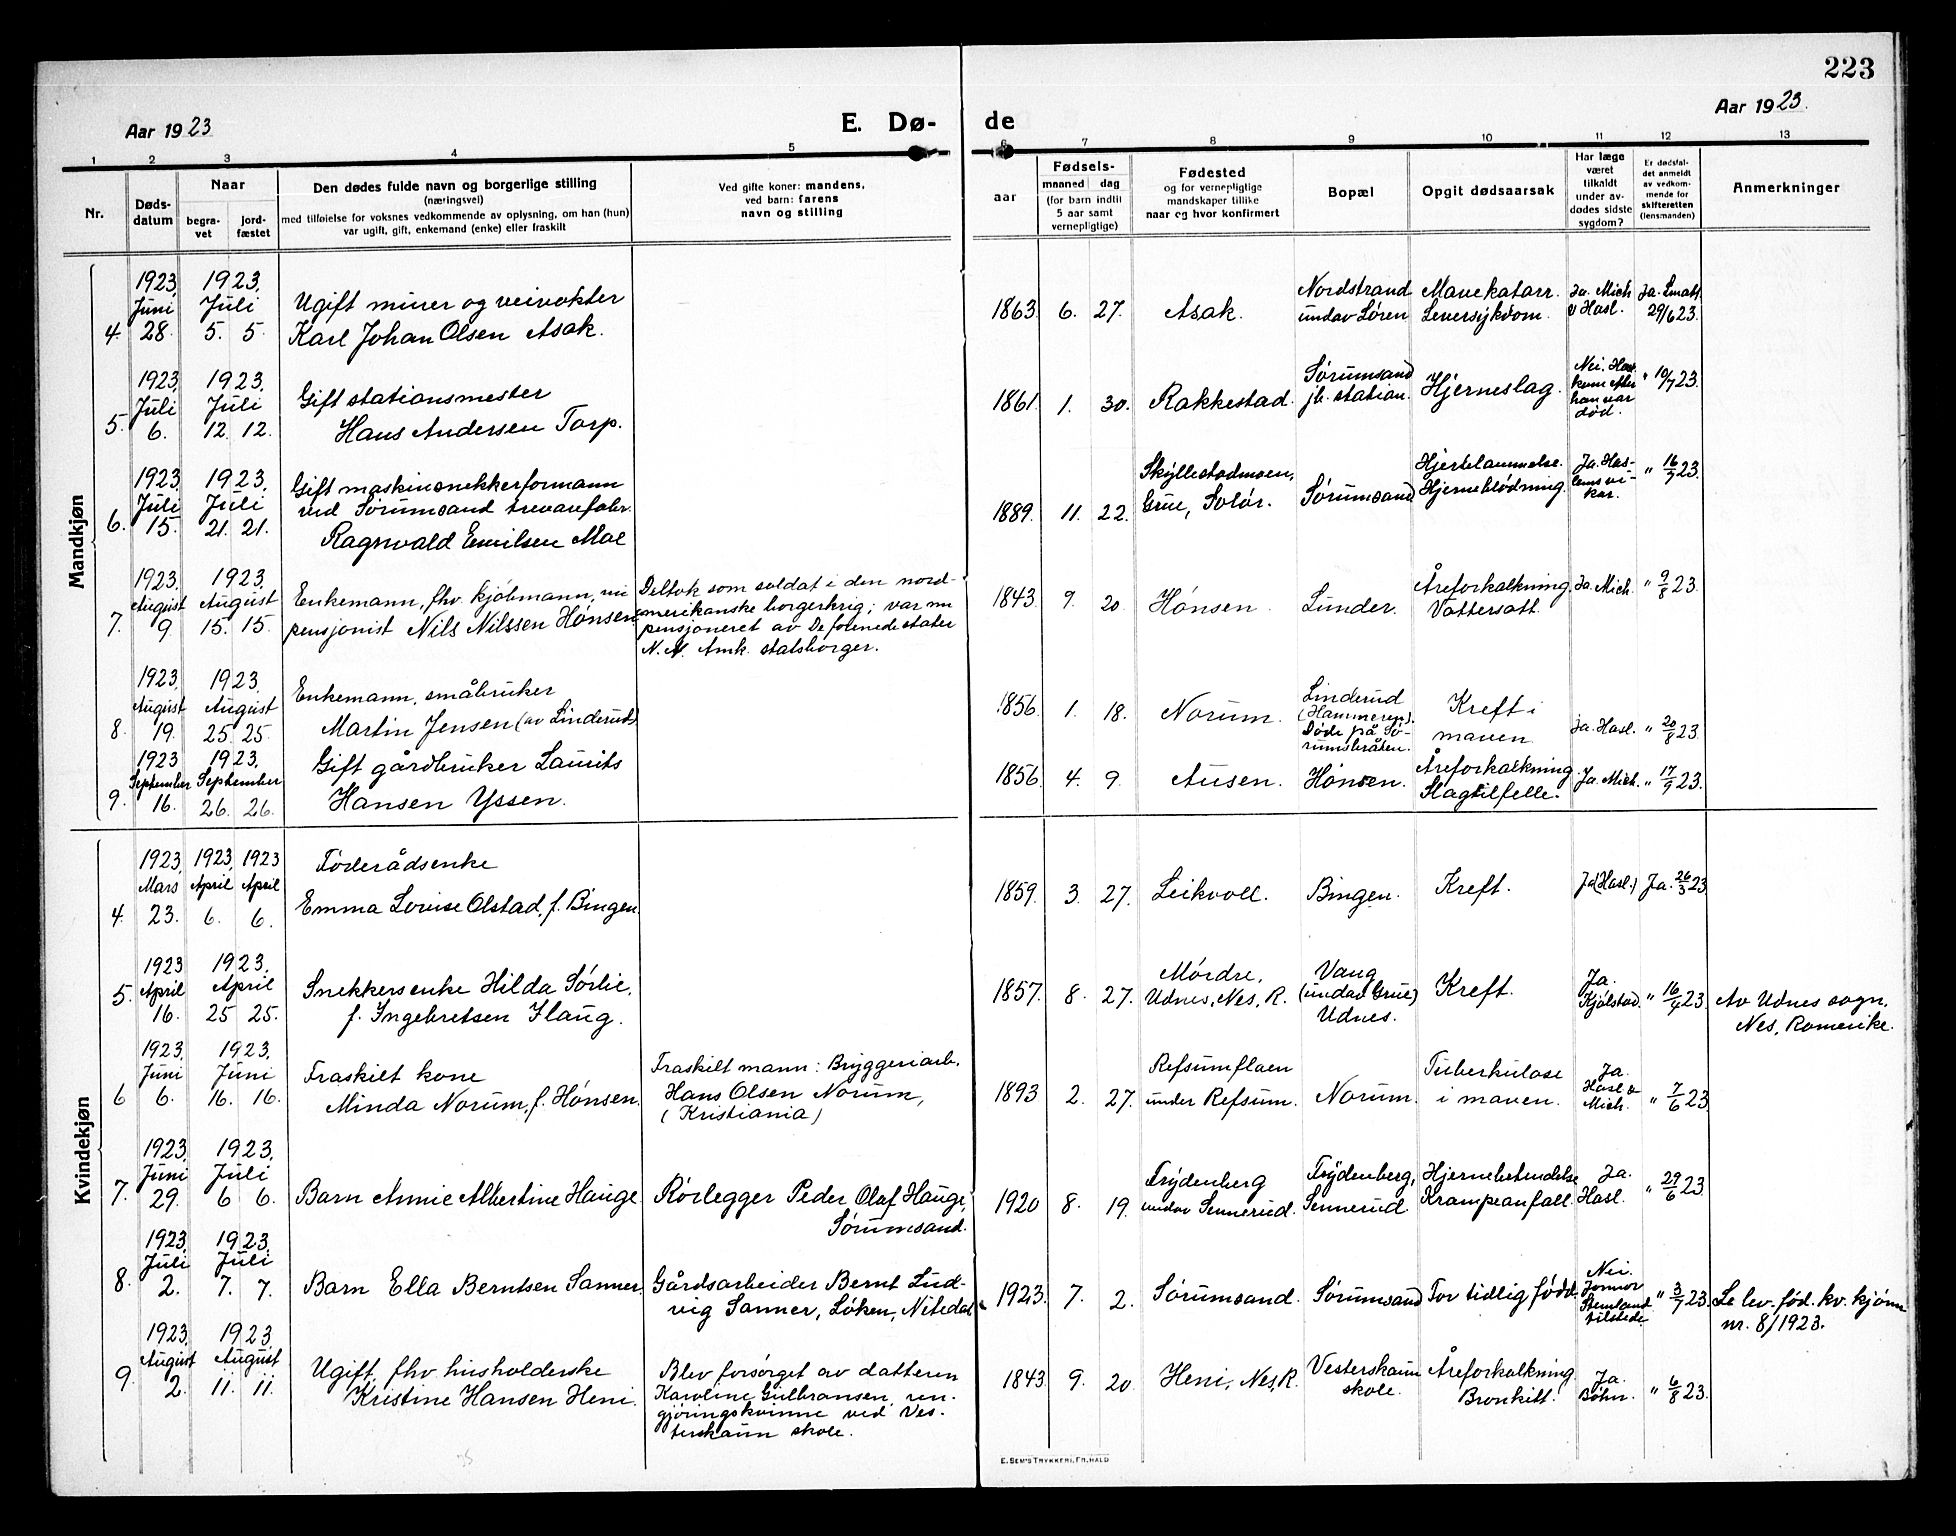 223
Aar 1923
E. Dø-
de
Aar 1923.
1 2 3 4 5 6 7 8 9 10 11 12 13
Nr.
Døds-
datum
Naar
begra-
vet
jord-
fæstet
Den dødes fulde navn og borgerlige stilling
(næringsvei)
med tilføielse for voksnes vedkommende av oplysning, om han (hun)
var ugift, gift, enkemand (enke) eller fraskilt
Ved gifte koner: mandens,
ved barn: farens
navn og stilling
Fødsels-
aar
maaned dag
(for barn indtil
5 aar samt
vernepligtige)
Fødested
og for vernepligtige
mandskaper tillike
naar og hvor konfirmert
Bopæl
Opgit dødsaarsak
Har læge
været
tilkaldt
under av-
dødes sidste
sygdom?
Er dødsfal-
det anmeldt
av vedkom-
mende for
skifteretten
(lensmanden)
Anmerkninger
Mandkjøn
4. 1923. Juni 28.
1923. Juli 5. 5.
Ugift murer og veivokter
Karl Johan Olsen Asak.
1863. 6. 27. Asak.
Nordstrand
undav Løren
Mavekatarr.
Leversykdom.
Ja. Mich
v Hasl.
Ja. Lmath.
29/6 23.
5. 1923. Juli 6.
1923. Juli 12. 12.
Gift stationsmester
Hans Andersen Torp.
1861. 1. 30. Rakkestad.
Sørumsand
jb. station.
Hjerneslag.
Nei. Hasl.
kom efter
han var
død.
" 10/7 23.
6. 1923. Juli 15.
1923. Juli 21. 21.
Gift maskinsnekkerformann
ved Sørumsand trevarefabr.
Ragnvald Emilsen Moe
1889. 11. 22.
Skyllestadmoen,
Grue, Solør.
Sørumsand
Hjertelammelse.
Hjerneblødning.
Ja. Has-
lems vi-
kar.
" 16/7 23.
7. 1923. August 9.
1923. August 15. 15.
Enkemann, fhv. kjøbmann, nu
pensjonist Nils Nilssen Hønsen.
Deltok som soldat i den nord-
amerikanske borgerkrig; var nu
pensjoneret av De forenede stater
N. A. Amk. statsborger.
1843. 9. 20. Hønsen. Lunder.
Åreforkalkning.
Vattersott.
Ja. Mich. " 9/8 23.
8. 1923. August 19.
1923. August 25. 25.
Enkemann, småbruker
Martin Jensen (av Linderud)
1856. 1. 18. Norum.
Linderud
(Hammeren).
Døde på Sø-
rumsbråten.
Kreft i
maven.
Ja. Hasl. " 20/8 23.
9. 1923 September 16.
1923. September 26. 26.
Gift gårdbruker Laurits
Hansen Yssen.
1856. 4. 9. Ausen. Hønsen.
Åreforkalkning.
Slagtilfelle.
Ja. Mich. " 17/9 23.
Kvindekjøn
4. 1923. Mars 23.
1923. April 6. 1923 April 6.
Føderådsenke
Emma Lovise Olstad, f. Bingen.
1859. 3. 27. Leikvoll. Bingen. Kreft.
Ja (Hasl.) Ja. 26/3 23.
5. 1923 April 16.
1923. April 25 25.
Snekkersenke Hilda Sørlie,
f. Ingebretsen Haug.
1857. 8. 27.
Mørdre,
Udnes, Nes, R.
Vang
(undav Grue)
Udnes.
Kreft.
Ja.
Kjølstad.
" 16/4 23
Av Udnes sogn,
Nes, Romerike.
6 1923. Juni 6.
1923. Juni 16. 16.
Fraskilt kone
Minda Norum, f. Hønsen.
Fraskilt mann: Bryggeriarb.
Hans Olsen Norum,
(Kristiania)
1893 2. 27.
Refsumflaen
under Refsum.
Norum.
Tuberkulose
i maven.
Ja.
Hasl &
Mich.
" 7/6 23
7. 1923. Juni 29.
1923. Juli 6 6.
Barn Annie Albertine Hauge
Rørlegger Peder Olaf Hauge,
Sørumsand.
1920 8. 19.
Frydenberg
undav Sennerud.
Frydenberg,
Sennerud.
Hjernebetendelse
Krampeanfall.
Ja.
Hasl.
" 29/6 23.
8. 1923. Juli 2.
1923. Juli 7. 7.
Barn Ella Berntsen Sanner.
Gårdsarbeider Bernt Lud-
vig Sanner, Løken, Nitedal.
1923. 7. 2. Sørumsand. Sørumsand For tidlig født.
Nei.
Jormor
Stenland
tilstede
" 3/7 23.
Se lev. fød. kv. kjønn
nr. 8/1923.
9. 1923. August 2.
1923. August 11. 11.
Ugift, fhv. husholderske
Kristine Hansen Heni.
Blev forsørget av datteren
Karoline Gulbransen, ren-
gjøringskvinne ved Ves-
terskaun skole.
1843. 9. 20. Heni, Nes, R.
Vesterskaun
skole.
Åreforkalkning.
Bronkitt.
Ja.
Bøhn.
" 6/8 23.
E. SEM'S TRYKKERI, FR.HALD